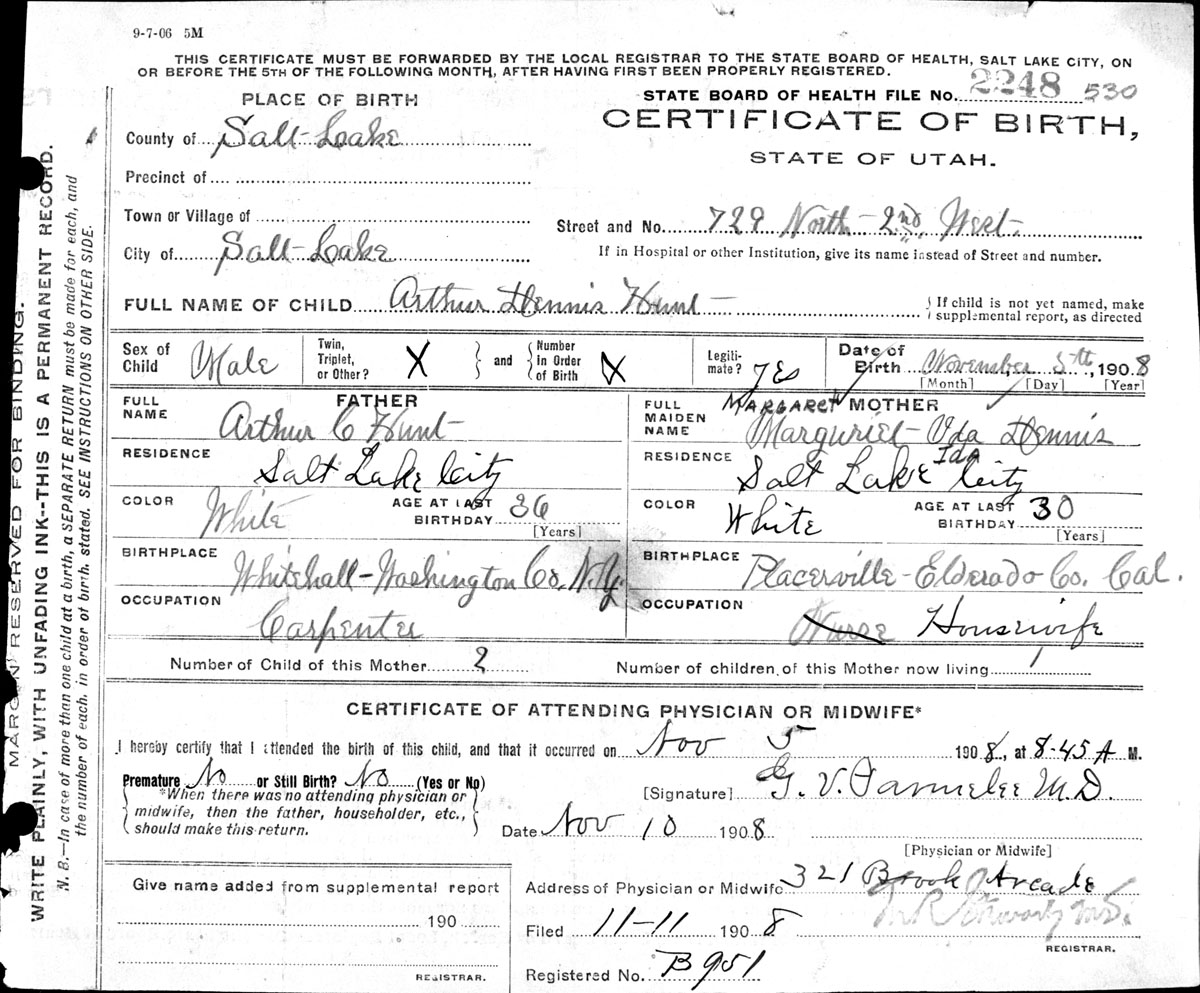 9-7-06 5M
THIS CERTIFICATE MUST BE FORWARDED BY THE LOCAL REGISTRAR TO THE STATE BOARD OF HEALTH, SALT LAKE CITY, ON
OR BEFORE THE 5TH OF THE FOLLOWING MONTH, AFTER HAVING FIRST BEEN PROPERLY REGISTERED.
STATE BOARD OF HEALTH FILE No. 2248 530
CERTIFICATE OF BIRTH,
STATE OF UTAH.
PLACE OF BIRTH
County of Salt Lake
Precinct of
Town or Village of
City of Salt Lake
Street and No. 729 North 2nd West
If in Hospital or other Institution, give its name instead of Street and number.
FULL NAME OF CHILD Arthur Dennis Hunt
If child is not yet named, make
supplemental report, as directed
Sex of Child Male
Twin, Triplet, or Other? X and Number in Order of Birth X
Legitimate? yes
Date of Birth November 5th, 1908
[Month] [Day] [Year]
FATHER
FULL NAME Arthur C Hunt
RESIDENCE Salt Lake City
COLOR White AGE AT LAST BIRTHDAY 36
[Years]
BIRTHPLACE Whitehall-Washington Co. N.Y.
OCCUPATION Carpenter
MARGARET MOTHER
FULL MAIDEN NAME Marguriet Vda Dennis
Ida
RESIDENCE Salt Lake City
COLOR White AGE AT LAST BIRTHDAY 30
[Years]
BIRTHPLACE Placerville-Elderado Co. Cal.
OCCUPATION Nurse Housewife
Number of Child of this Mother 2
Number of children, of this Mother now living 1
CERTIFICATE OF ATTENDING PHYSICIAN OR MIDWIFE*
I hereby certify that I attended the birth of this child, and that it occurred on Nov 5 1908, at 8-45 A M.
Premature No or Still Birth? No (Yes or No)
*When there was no attending physician or
midwife, then the father, householder, etc.,
should make this return.
[Signature] G. V. Parmelee M.D.
Date Nov 10 1908
[Physician or Midwife]
Give name added from supplemental report
190
REGISTRAR.
Address of Physician or Midwife 321 Brook Arcade
Filed 11-11 1908
REGISTRAR.
Registered No. B951
MARGIN RESERVED FOR BINDING.
WRITE PLAINLY, WITH UNFADING INK--THIS IS A PERMANENT RECORD.
N. B.—In case of more than one child at a birth, a SEPARATE RETURN must be made for each, and
the number of each, in order of birth, stated. SEE INSTRUCTIONS ON OTHER SIDE.